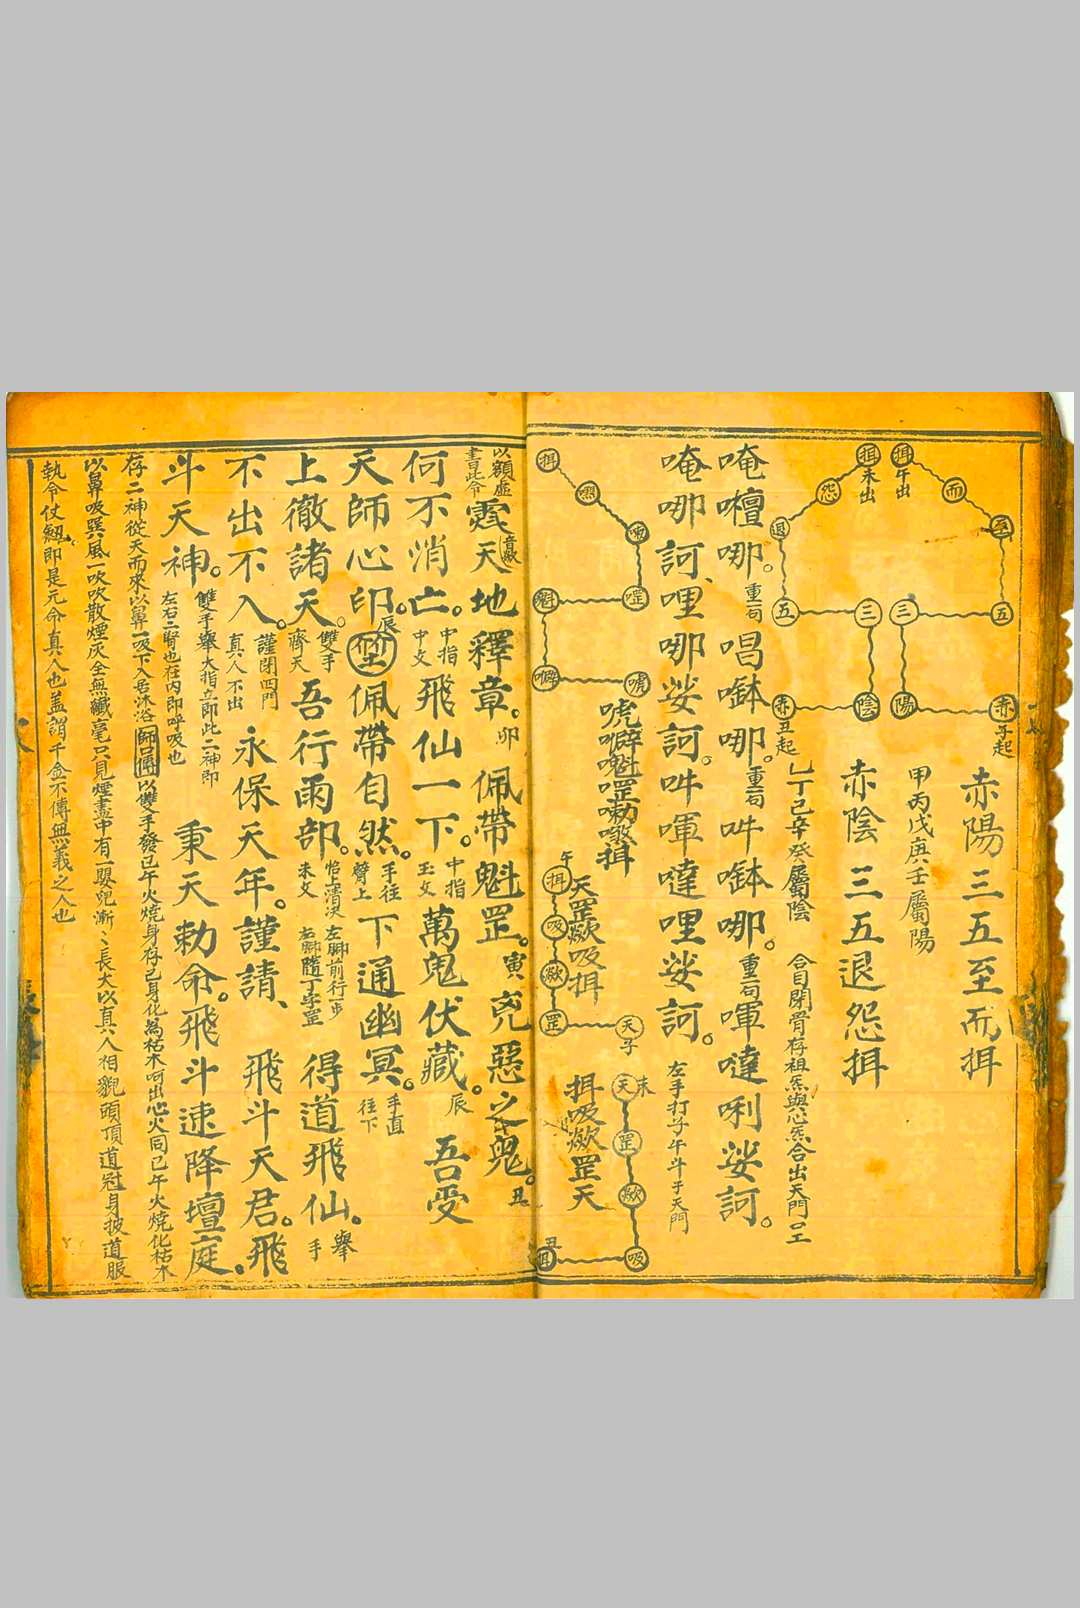 赤陽三五至而揖
甲丙戊庚壬屬陽
赤陰三五退怨揖
乙丁己辛癸屬陰　合目閉胃存祖炁與心炁合出天門
揖 午出
而
至
五
三
陽
赤 子起
揖 未出
怨
退
五
三
陰
赤 丑起
唵嚪哪。重句唱𠱀哪。重句吽𠱀哪。重句㖇噠唎娑訶。
唵哪訶、哩哪娑訶。吽㖇噠哩娑訶。左手打子午斗于天門
唬噼魁罡
揖
魁
罡
噼
唬
天罡歘吸揖
午
揖
吸
歘
罡
天 子
揖吸歘罡天
天 未
罡
歘
吸
丑
以額虛書此令
霐天地釋章。卯佩帶魁罡。寅兇惡之鬼。丑
何不消亡。中指中文飛仙一下。中指玉文萬鬼伏藏。辰吾受
天師心印。辰佩帶自然。手往臂上下通幽冥。手直往下
上徹諸天。雙手齊天吾行雨部。未文左脚前行一步右脚隨丁字罡得道飛仙。舉手
不出不入。謹閉四門真人不出永保天年。謹請、飛斗天君。飛
斗天神。雙手舉大指立即此二神即左右二腎也在內即呼吸也秉天勅命。飛斗速降壇庭。
存二神從天而來以鼻一吸下入舌沐浴師曰傳以雙手發巳午火燒身存己身化為枯木呵出心火同巳午火燒化枯木
以鼻吸巽風一吹吹散煙灰全無纖毫只見煙盡中有一嬰兒漸〻長大以真人相貌頭頂道冠身披道服
執令仗劔即是元命真人也蓋謂千金不傳無義之人也